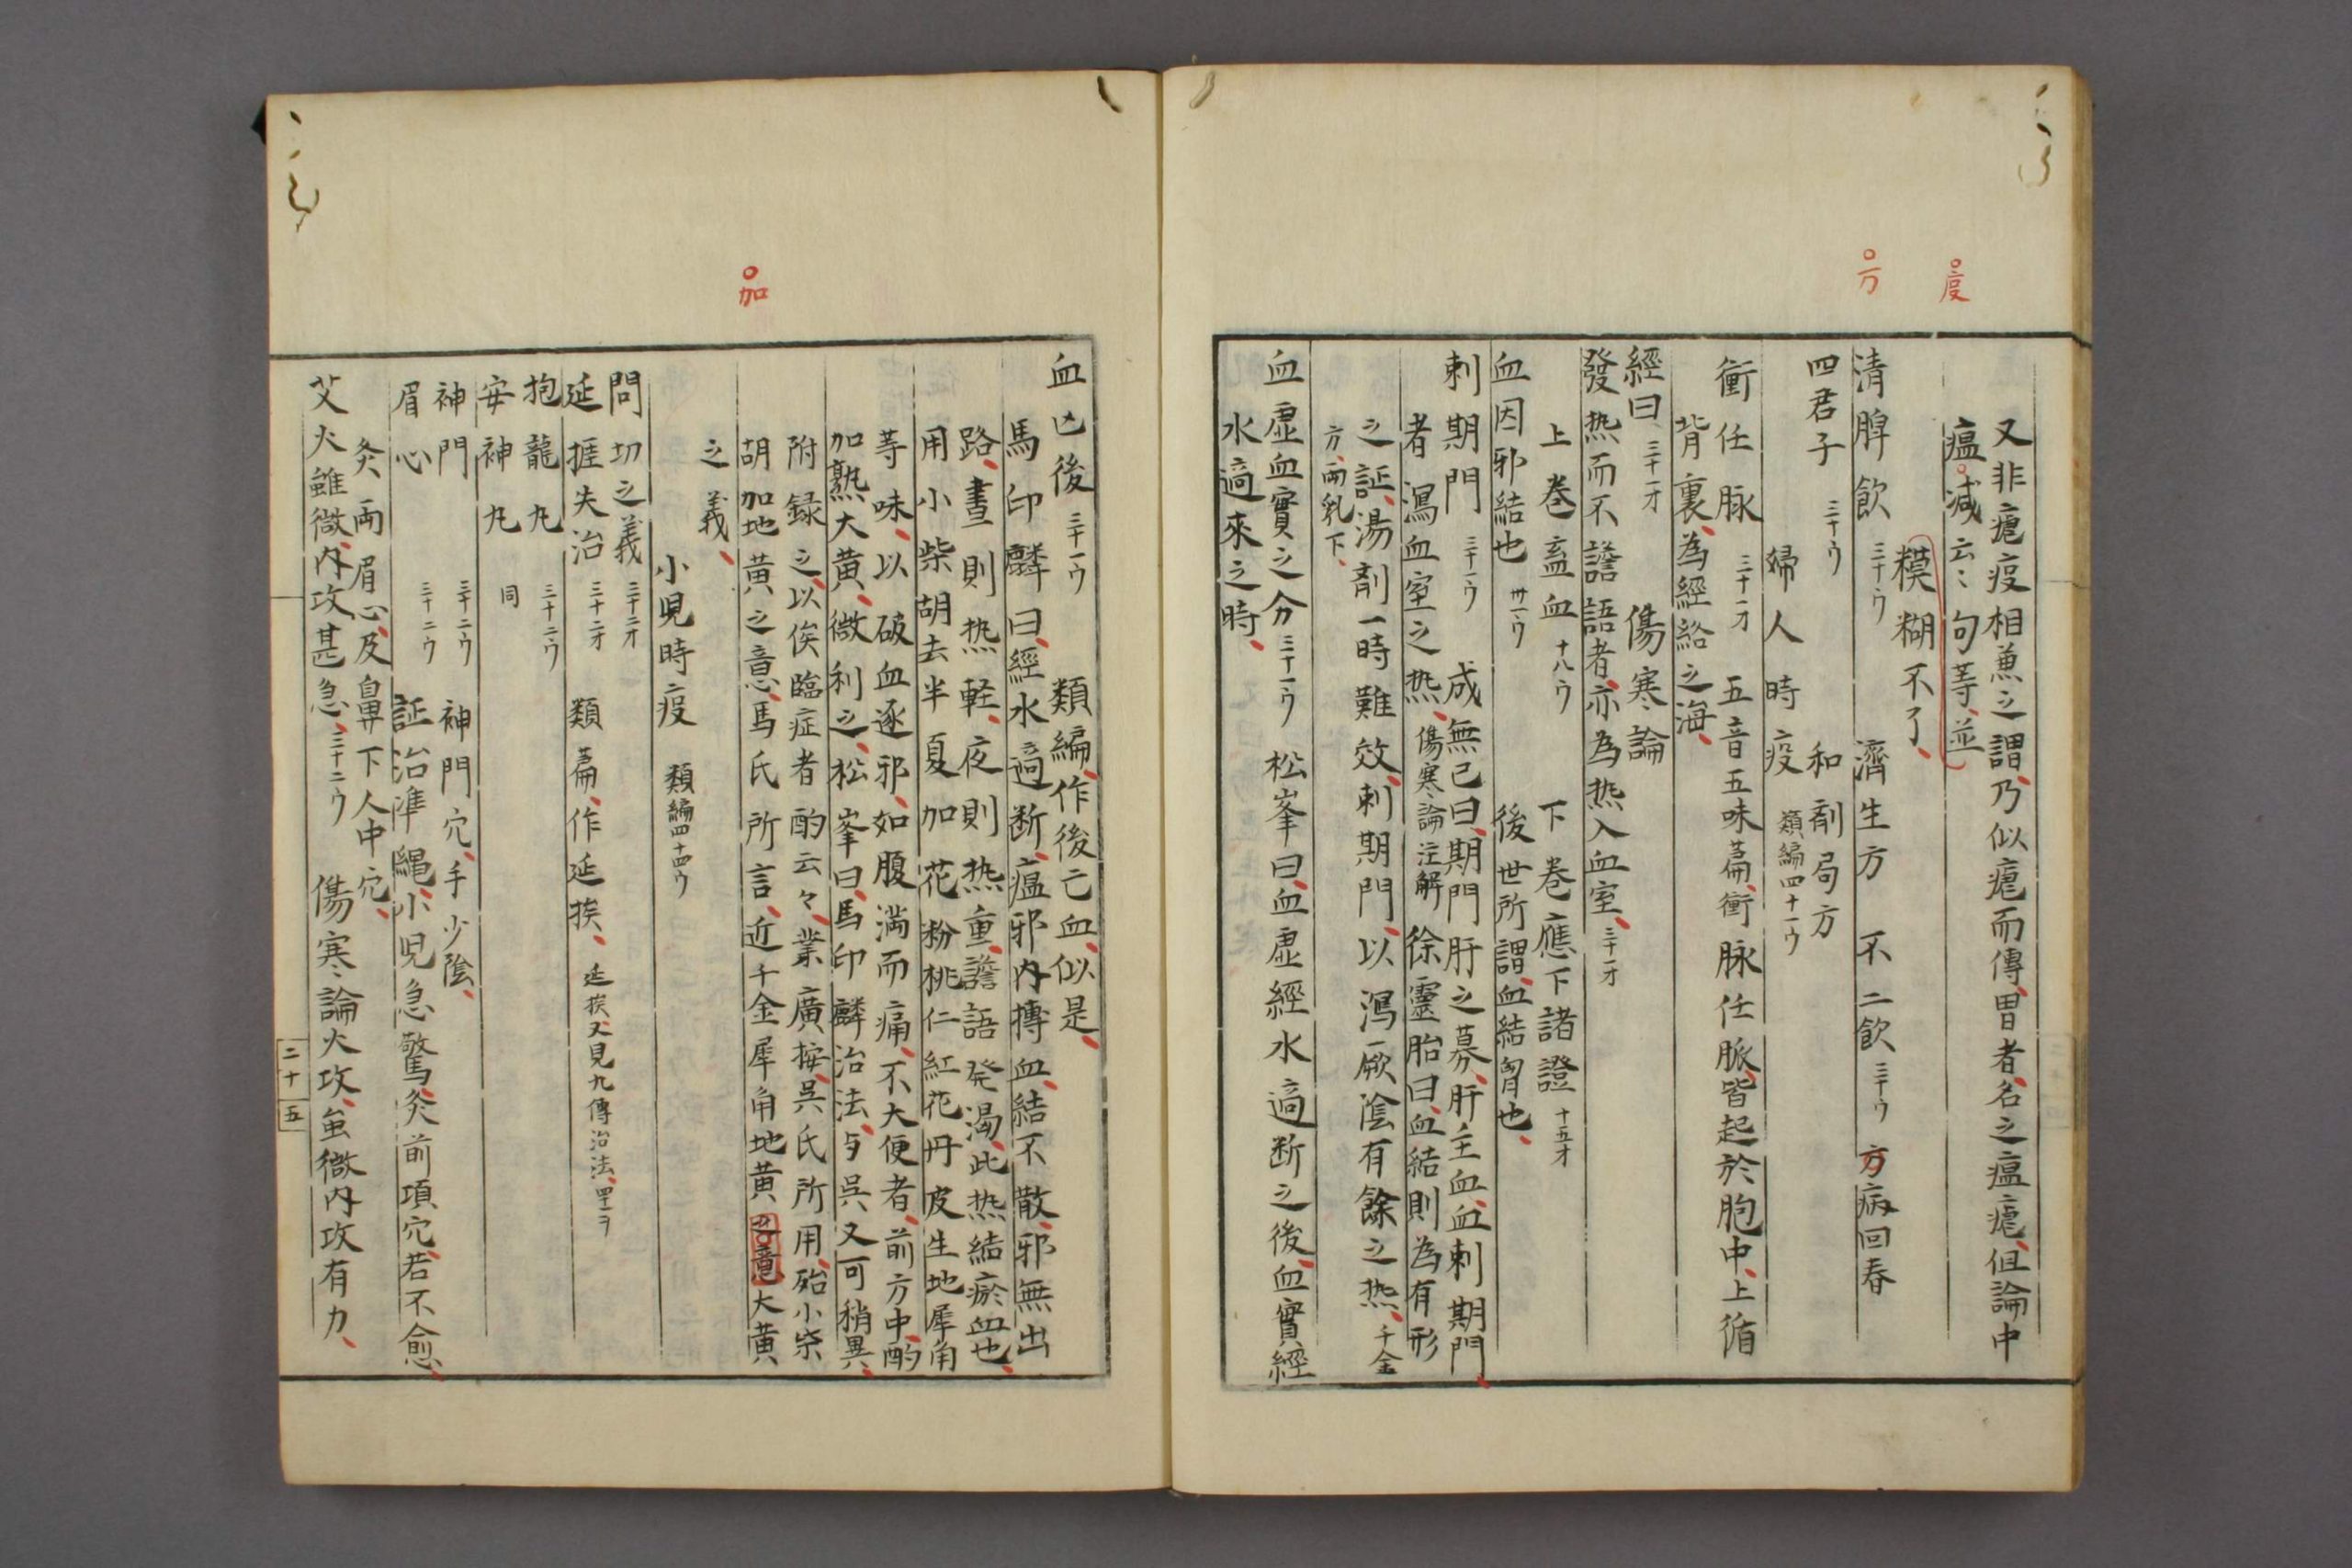 ○度
○方
又非瘧疫相兼之謂、乃似瘧而傳、胃者、名之瘟瘧、但論中
瘟○減云〻句等、並
糢糊不了、
清脾飲 三十ウ 濟生方 不二飲 三十ウ 方病回春
四君子 三十ウ 和剤局方
婦人時疫 類編四十一ウ
衝任脉 三十一オ 五音五味萹、衝脉任脈、皆起於胞中、上循
背裏、為經絡之海、
經曰 三十一オ 傷寒論
發热而不譫語者、亦為热入血室、三十一オ
上巻蓄血 十八ウ 下巻應下諸證 十五オ
血因邪結也 卅一ウ 後世所謂、血結胷也、
刺期門 三十一ウ 成無己曰、期門肝之募、肝主血、血刺期門、
者瀉血室之热、傷寒論注解 徐靈胎曰、血結則為有形
之証、湯剤一時難效、刺期門、以瀉厥陰有餘之热、千金
方、両乳下、
血虛血實之分 三十一ウ 松峯曰、血虛經水適断之後、血實經
水適來之時、
○加
血凶後 三十一ウ 類編、作後亡血、似是、
馬印麟曰、經水適断、瘟邪内搏血、結不散、邪無出
路、晝則热軽、夜則热重、譫語発渇、此热結瘀血也、
用小柴胡去半夏加花粉桃仁紅花丹皮生地犀角
等味、以破血逐邪、如腹満而痛、不大便者、前方中、酌
加熟大黄、微利之、松峯曰、馬印麟治法、与吳又可稍異、
附録之、以俟臨症者酌云々、業廣按、吳氏所用、殆小柴
胡加地黄之意、馬氏所言、近千金犀角地黄大黄
之義、
小児時疫 類編四十四ウ
問切之義 三十二オ
延捱失治 三十二オ 類萹、作延挨、延挨又見九傳治法、
抱龍丸 三十二ウ
安神丸 同
神門 三十二ウ 神門穴、手少陰、
眉心 三十二ウ 証治準縄、小児急驚、灸前項穴、若不愈、
灸両眉心、及鼻下人中穴、
艾火雖微、内攻甚急、三十二ウ 傷寒論火攻、虽微内攻有力、
二十五